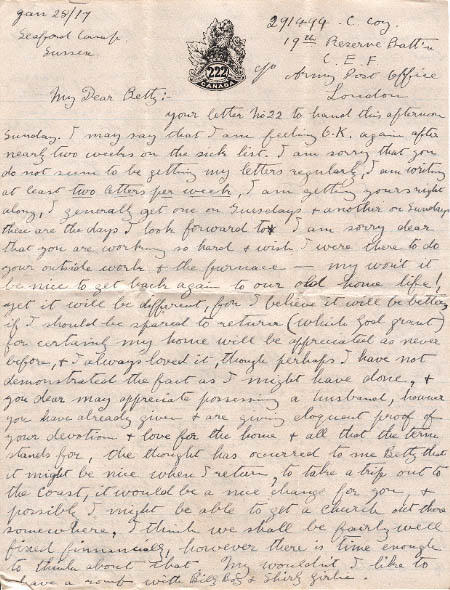 Jan 28/17
Seaford Camp
Sussex.
222
CANADA
c/o
291499 - C. Coy.
19th Reserve Battn
C. E. F
Army Post Office
London
My Dear Betty:-
your letter No 22 to hand this afternoon
Sunday. I may say that I am feeling O.K. again after
nearly two weeks on the sick list. I am sorry that you
do not seem to be getting my letters regularly, I am writing
at least two letters per week, I am getting yours right
along, I generally get one on Tuesdays & another on Sundays
these are the days I look forward to. I am sorry dear
that you are working so hard & wish I were there to do
your outside work & the furnace — my won't it
be nice to get back again to our old home life!
yet it will be different, for I believe it will be better,
if I should be spared to return (which God grant)
for certainly my home will be appreciated as never
before, & I always loved it, though perhaps I have not
demonstrated the fact as I might have done, &
you dear may appreciate possessing a husband, however
you have already given & are giving eloquent proof of
your devotion & love for the home & all that the term
stands for, the thought has occurred to me Betty that
it might be nice when I return, to take a trip out to
the Coast, it would be a nice change for you, &
possibly I might be able to get a Church out there
somewhere, I think we shall be fairly well
fixed financially, however there is time enough
to think about that. My wouldn't I like to
have a romp with Billy Boy & Shirly girlie.